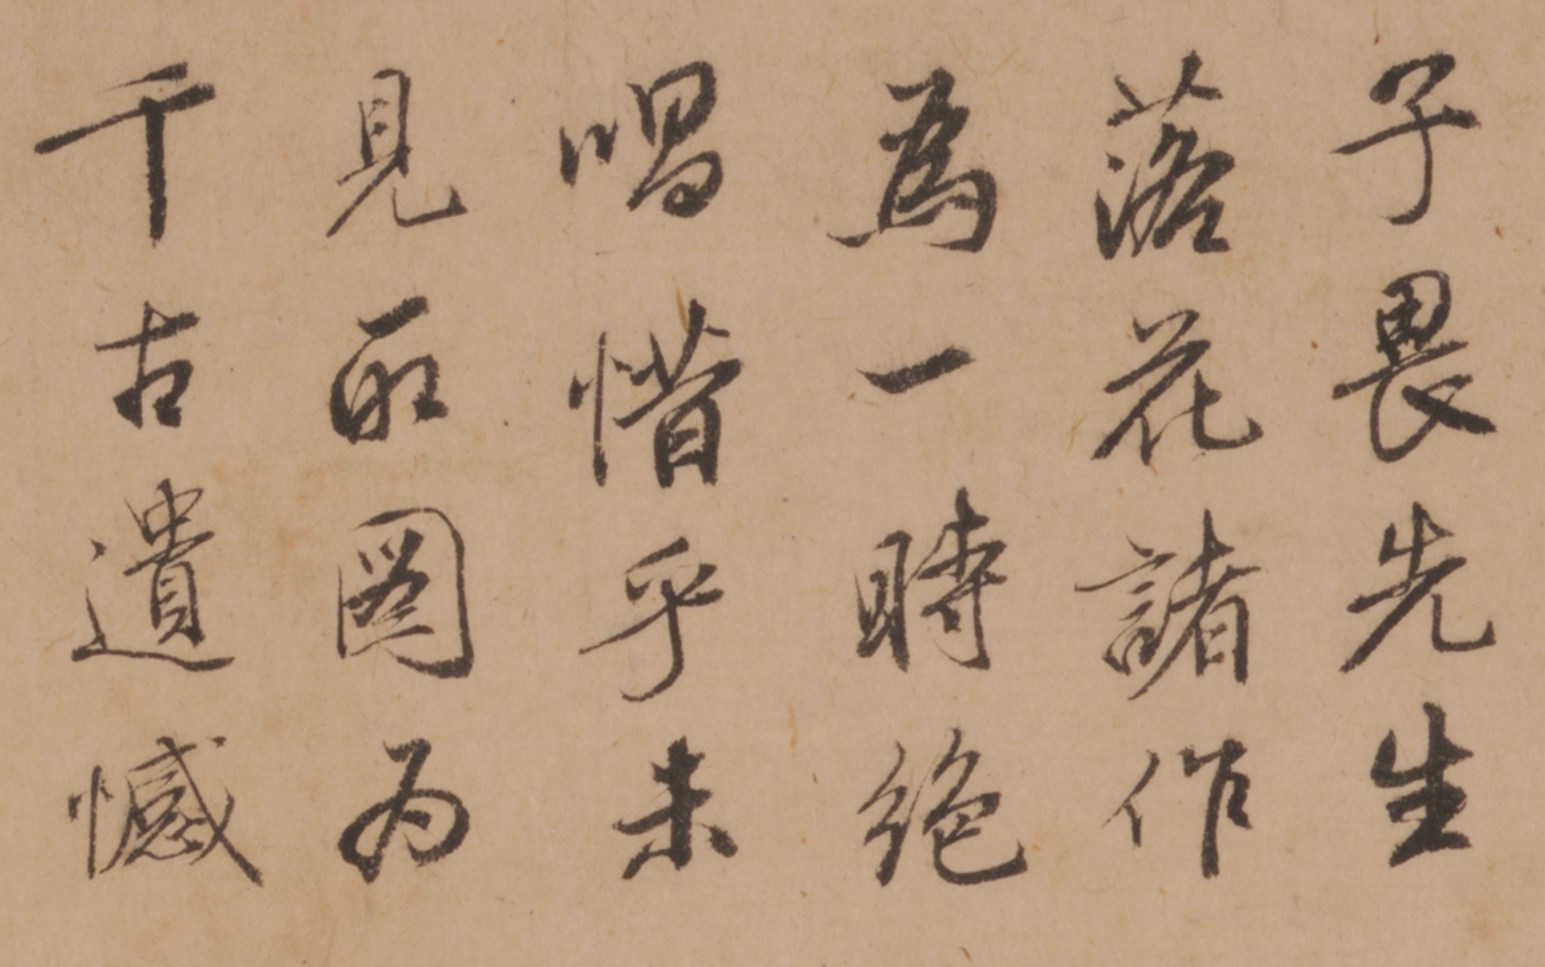 子畏先生
落花諸作
為一時絶
唱惜乎未
見所圖为
千古遺憾